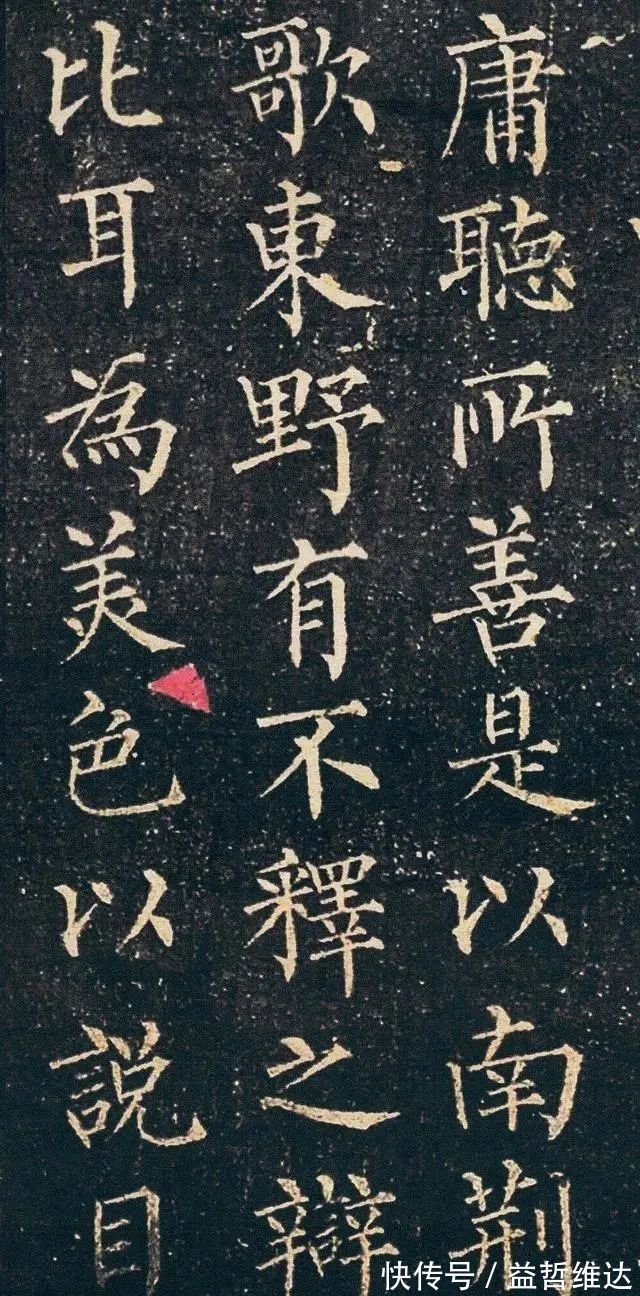 庸聽所善是以南荆
歌東野有不釋之辯
比耳為美色以説目
快传号/益哲维达